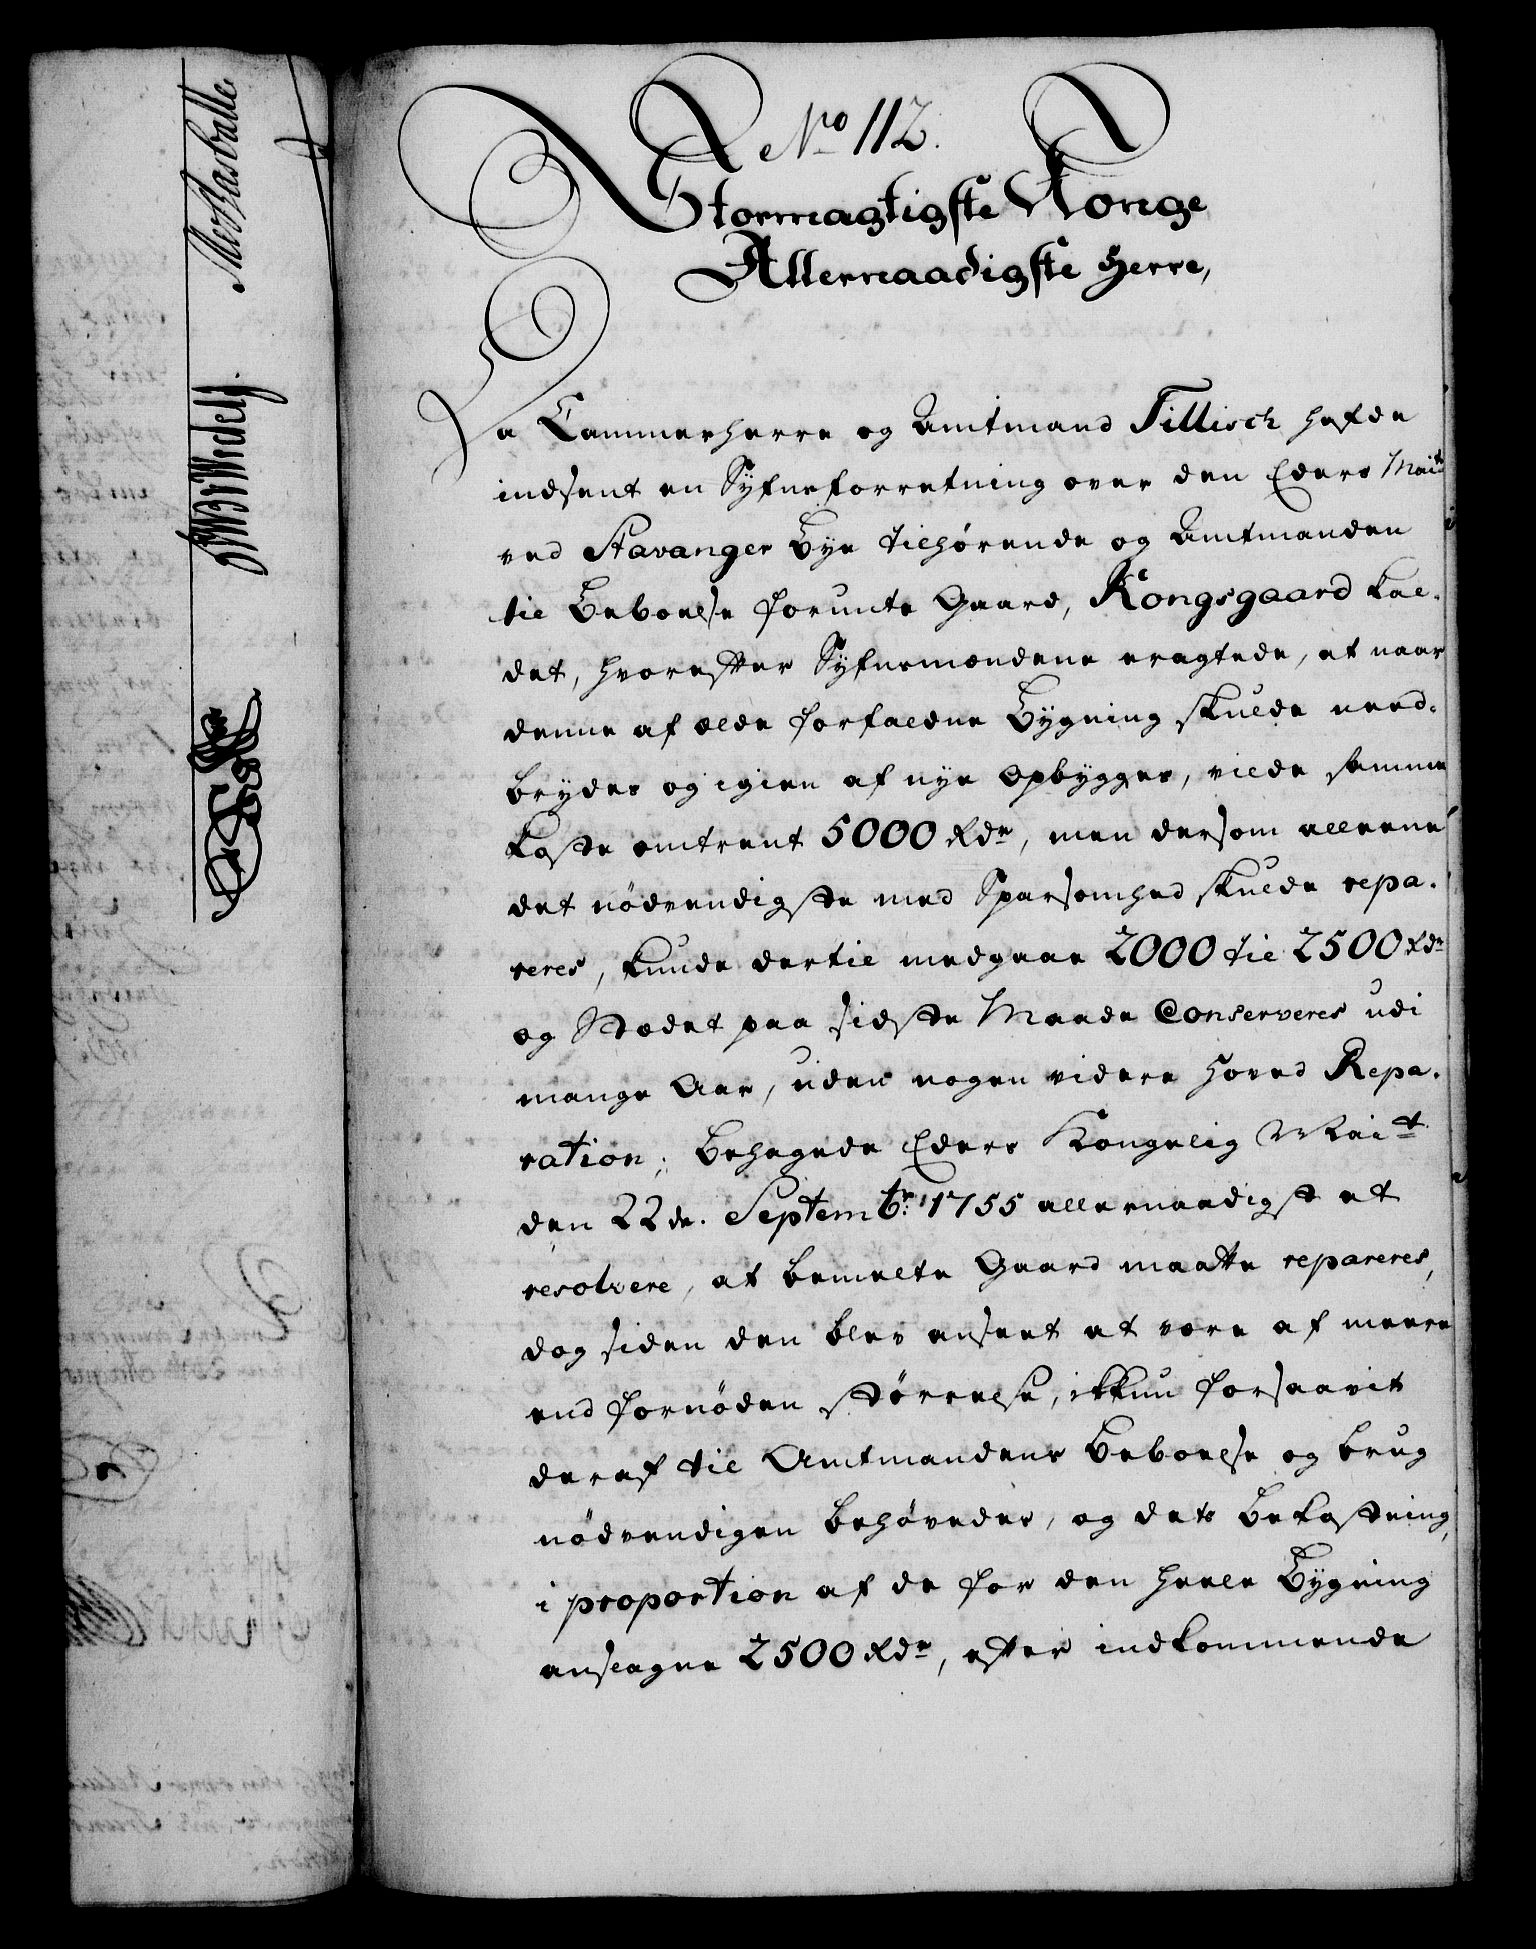 No 112.
Stormagtigste Konge
Allernaadigste Herre,
Da Cammerherre og Amtmand Tillisch hafde
indsent en Synsforretning over den Eders Maits
ved Stavanger Bye tilhørende og Amtmanden
til Beboelse forunte Gaard, Kongsgaard kal-
det, hvorefter Synsmændene eragtede, at naar
denne af ælde forfaldne Bygning skulde need-
brydes og igien af nye opbygges, vilde samme
koste omtrent 5000 Rdr, men dersom alleene
det nödvendigste med Sparsomhed skulde repa-
reres, kunde dertil medgaae 2000 til 2500 Rdr
og Stædet paa sidste Maade Conserveres udi
mange Aar, uden nogen videre Hoved Repa-
ration; Behagede Eders Kongelig Mait
den 22de. Septembr: 1755 allernaadigst at
resolvere, at bemelte Gaard maatte repareres,
dog siden den blev anseet at være af meere
end fornöden störrelse, ikkun forsaavit
deraf til Amtmandens Beboelse og brug
nödvendigen behøvedes, og dets Bekostning,
i proportion af de for den heele Bygning
anslagne 2500 Rdr, efter indkommende